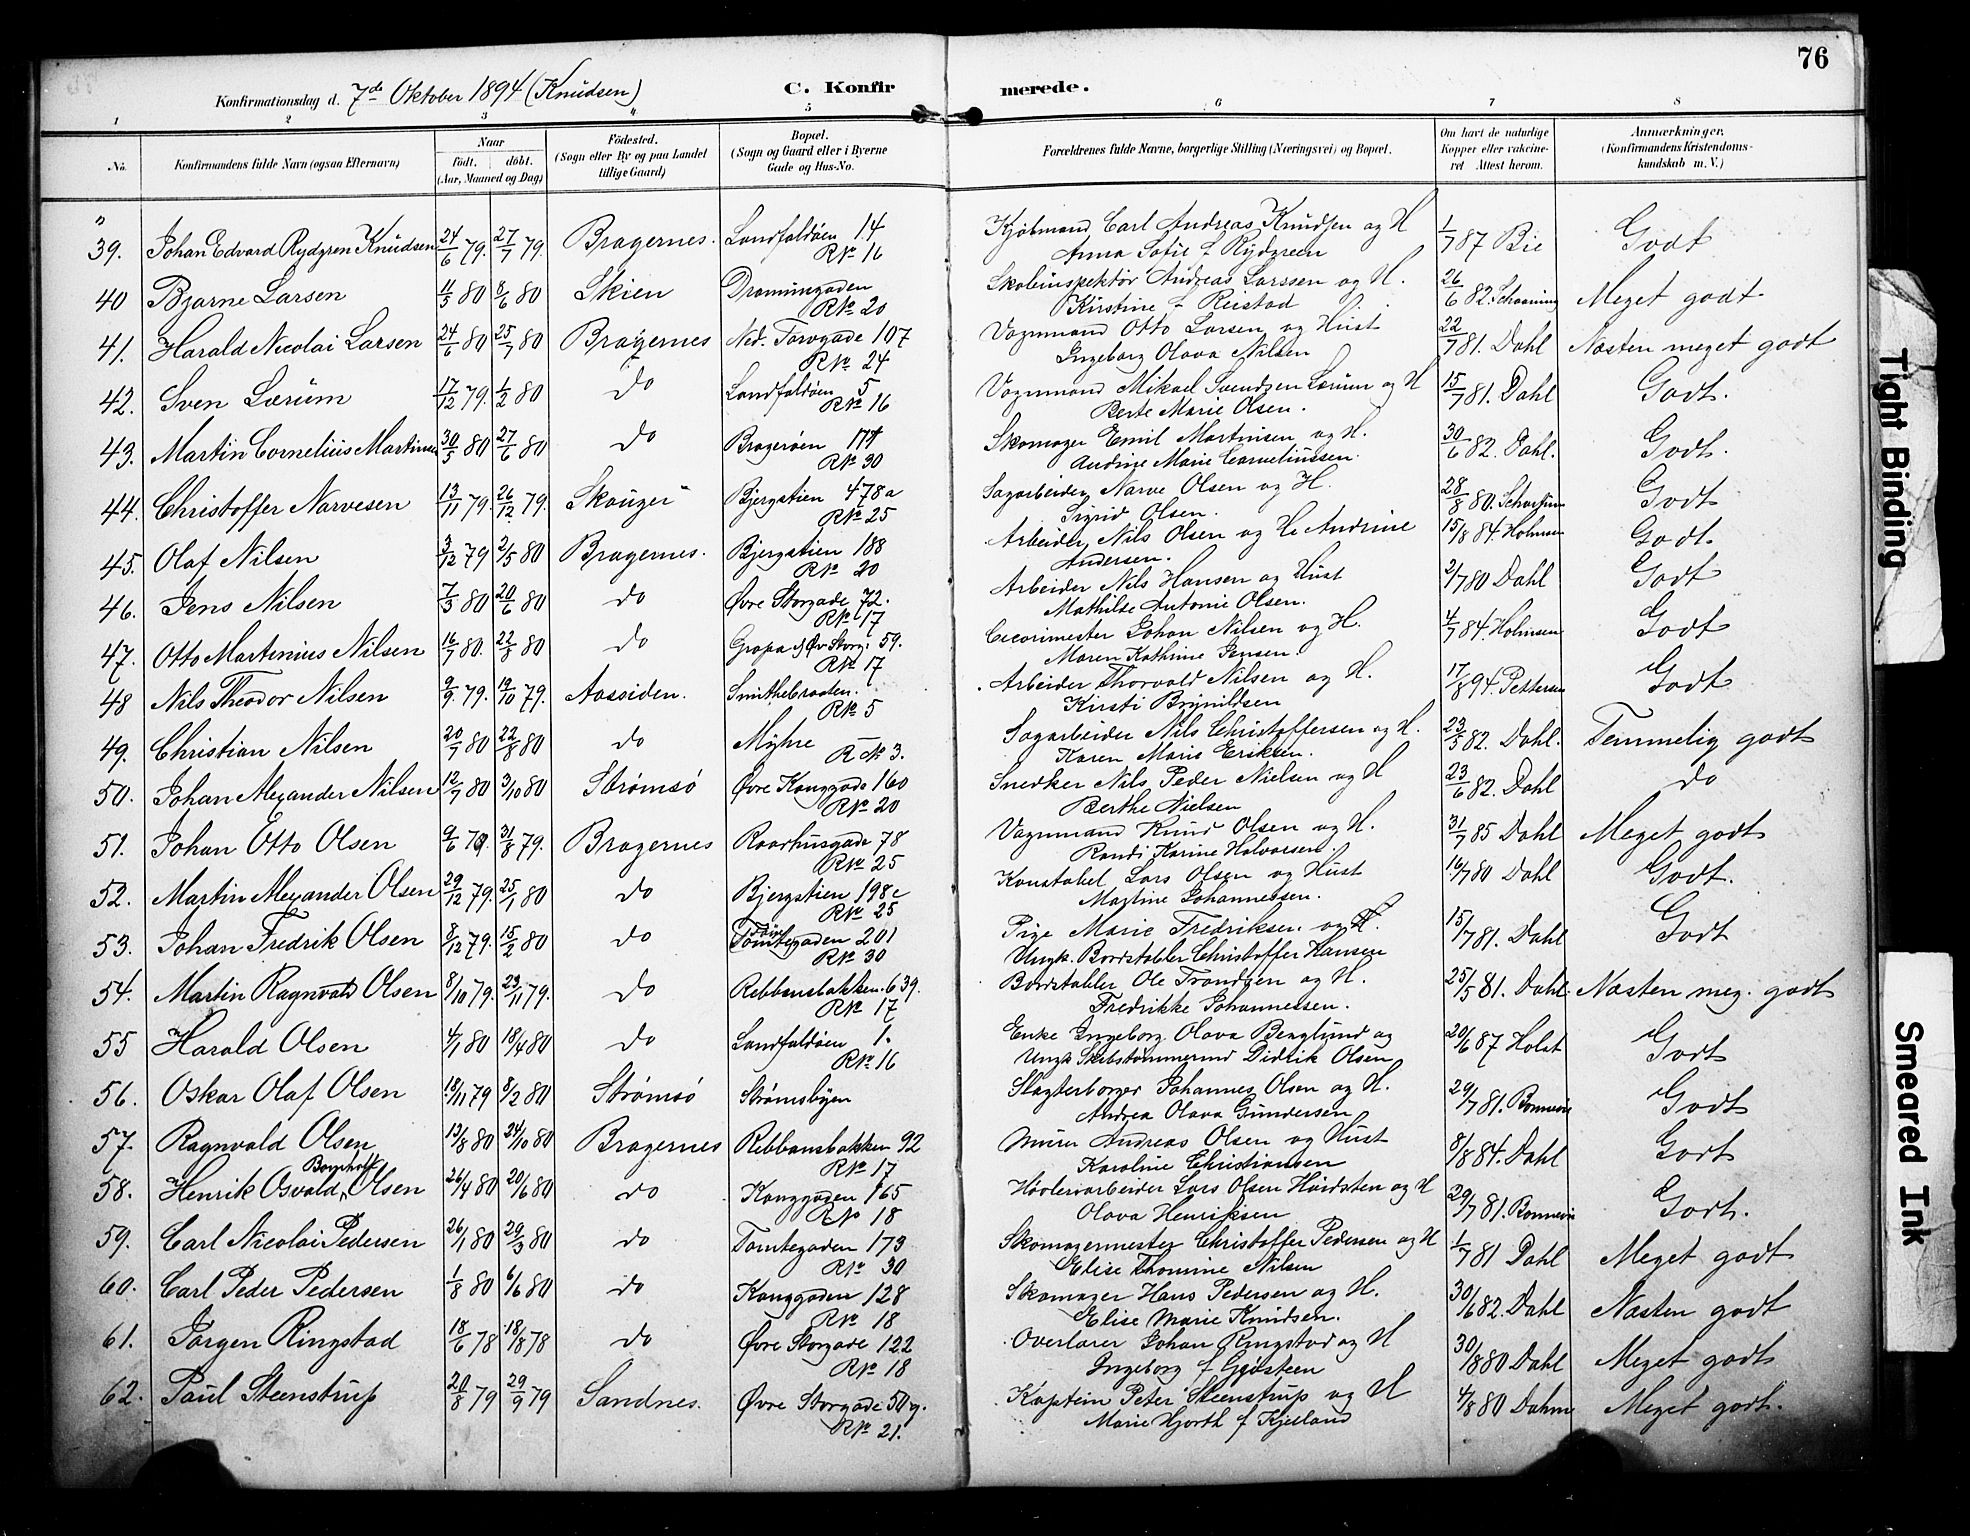 76
Konfirmationsdag d. 7de Oktober 1894 (Knudsen)
C. Konfir merede.
1 2 3 4 5 6 7 8
No.
Konfirmandens fulde Navn (ogsaa Efternavn)
Naar
födt. döbt.
(Aar, Maaned og Dag)
Födested.
(Sogn eller By og paa Landet
tillige Gaard)
Bopæl.
(Sogn og Gaard eller i Byerne
Gade og Hus-No.
Forældrenes fulde Navne, borgerlige Stilling (Næringsvei) og Bopæl.
Om havt de naturlige
Kopper eller vakcine-
ret Attest herom.
Anmærkninger.
(Konfirmandens Kristendoms-
kundskab m. V.)
39. Johan Edvard Rydgren Knudsen 24/6 79. 27/7 79. Bragernes. Landfaldöen 14 Kjöbmand Carl Andreas Knudsen og H 1/7 87 Bie Godt
R No 16 Anna Sofie f. Rydgreen
40 Bjarne Larsen 11/5 80 8/6 80 Skien Skoleinspektör Andreas Larssen og H. 26/6 82. Meget godt
R No 20 Kirstine f Reistad
41. Harald Nicolai Larsen 24/6 80 25/7 80 Bragernes Ned. Torvgade 107 Vognmand Otto Larsen og Hust 22/7 81. Dahl Næsten meget godt
R No 24 Ingeborg Olava Nilsen
42. Sven Lærum 17/12 79. 1/2 80 do Landfaldöen 5 Vognmand Mikael Svendsen Lærum og H 15/7 81. Dahl Godt.
R No 16 Berte Marie Olsen.
43. Martin Cornelius Martinsen 30/5 80 27/6 80 do Bragerøen 174 Skomager Emil Martinsen og H. 30/6 82. Dahl. Godt.
R No 30 Andine Marie Corneliussen.
44. Christoffer Narvesen 13/11 79. 26/12 79. Skouger Bjergstien 478a Sagarbeider Narve Olsen og H. 28/8 80. Godt
R No 25 Sigrid Olsen.
45. Olaf Nilsen 3/12 79 2/5 80 Bragernes. Bjergstien 188 Arbeider Nils Olsen og H. Andrine 15/8 84. Holmsen Godt.
R No 20 Andersen.
46. Jens Nilsen 7/3 80 20/6 80 do Øvre Storgade 72. Arbeider Nils Hansen og Hust 2/7 80 Dahl Godt
R No 17 Mathilde Antonie Olsen.
47. Otto Martinius Nilsen 16/7 80. 22/8 80. do 59. Johan Nilsen og H. 4/7 84. Holmsen Godt
R No 17 Maren Kathrine Jensen.
48 Nils Theodor Nilsen 9/9. 79. 19/10 79. Aassiden. Smithebraaten. Arbeider Thorvald Nilsen og H. 17/8 94. Pettersen Godt
R No 5 Kirsti Brynildsen
49. Christian Nilsen 20/7 80 22/8 80 do Myhre Sagarbeider Nils Christoffersen og H. 23/5 82. Dahl. Temmelig godt
R No 3. Karen Marie Eriksen.
50. Johan Alexander Nilsen 12/7 80 3/10 80 Strømsö Øvre Konggade 160 Snedker Nils Peder Nielsen og H 23/6 82. Dahl do
R No 20 Berthe Nielsen
51. Johan Otto Olsen 9/6 79. 31/8 79. Bragernes Raadhusgade 78 Vognmand Knud Olsen og H. 31/7 85 Dahl Meget godt
R No 25 Randi Karine Halvorsen.
52. Martin Alexander Olsen 29/12 79. 25/1 80 do Bjergstien 198c Konstabel Lars Olsen og Hust 16/7 80 Dahl Godt.
R No 25 Martine Johannessen.
53. Johan Fredrik Olsen 8/12 79. 15/2 80 do Tomtegaden 201 Pige Marie Fredriksen 15/7 81. Dahl Godt
R No 30 Ungk. Bordstabler Christoffer Hansen
54. Martin Ragnvald Olsen 8/10 79. 23/11 79. do Rebbansbakken. 639. Bordstabler Ole Trondsen og H. 25/5 81. Dahl. Næsten meg. godt
R No 17 Fredrikke Johannessen.
55 Harald Olsen 4/1 80 18/4 80 do Landfaldöen 1. Enke Ingeborg Olava Berglund og 20/6 87 Holst Godt
R No 16 Ungk Skibstømmermd Didrik Olsen
56. Oskar Olaf Olsen 18/11 79 8/2 80 Strømsö Strømsbyen Slagterborger Johannes Olsen og H. 29/7 81. Bonnevie Godt
Andrea Olava Gundersen
57. Ragnvald Olsen 13/8 80 24/10 80 Bragernes Rebbansbakken 92 Murer Andreas Olsen og Hust 8/8 84. Dahl Godt
R No 17 Karoline Christiansen
58. Henrik Osvald Bomholt Olsen 26/4 80 20/6 80 do Konggaden 165 Høvleriarbeider Lars Olsen og H 29/7 81. Bonnevie Godt.
R No 18 Olava Henriksen
59. Carl Nicolai Pedersen 26/1 80 29/3 80 do Tomtegaden 173 Skomagermester Christoffer Pedersen og H 1/7 81 Dahl Meget godt
R No 30 Elise Thomine Nilsen
60. Carl Peder Pedersen 1/8 80 6/16 80 do Konggaden 128 Skomager Hans Pedersen og H. 30/6 82. Dahl Næsten godt
R No 18 Elise Marie Knudsen.
61. Jörgen Ringstad 18/6 78 18/8 78 do Øvre Storgade 122 Overlærer Johan Ringstad og H 30/8 80 Dahl Meget godt
R No 18 Ingeborg f
62. Paul Steenstrup 20/8 79 29/9 79 Sandnes. Øvre Storgade 50g. Kaptein Peter Steenstrup og H 4/8 80 Meget godt.
R No 21. Marie Hjorth f Kjelland
Tight Binding
Smeared Ink